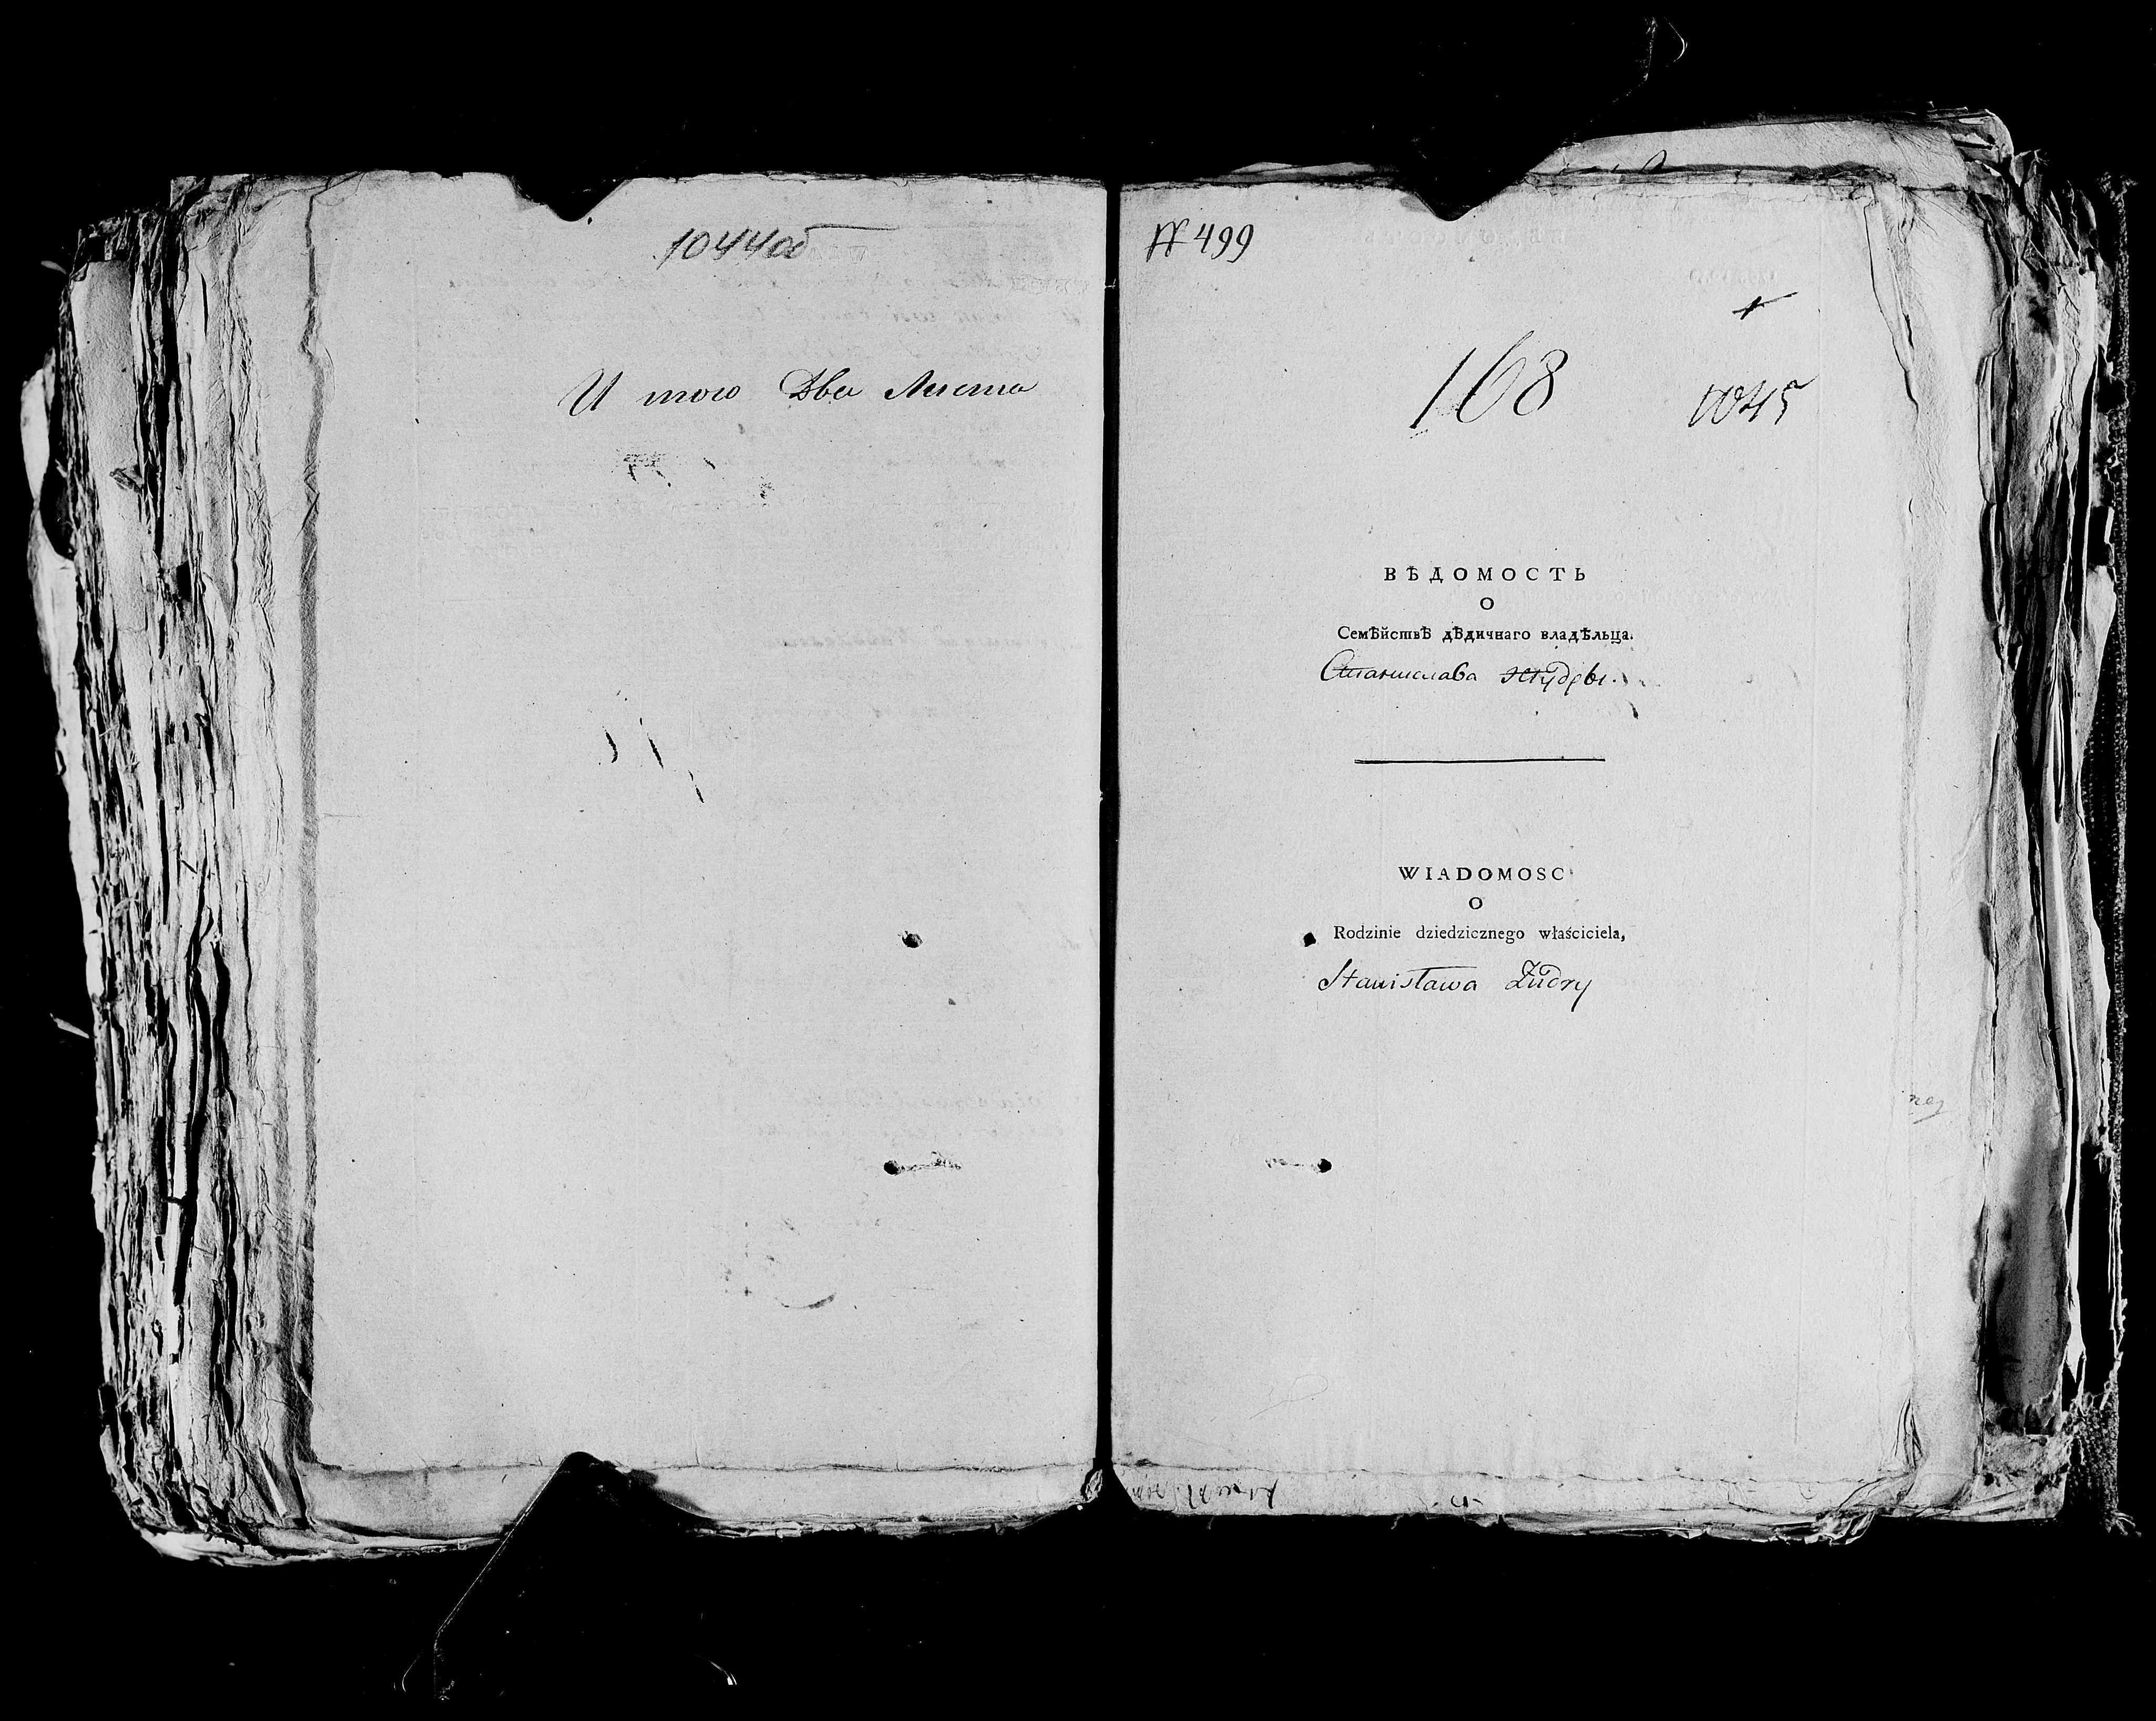 1044 об
И того Два Листа
№ 499
168
1045
ВѢДОМОСТЬ
О
Семѣйствѣ дѣдичнаго владѣльца.
Станислава Жудры.
WIADOMOSC
O
Rodzinie dziedzicznego właściciela,
Stanisława Żudry